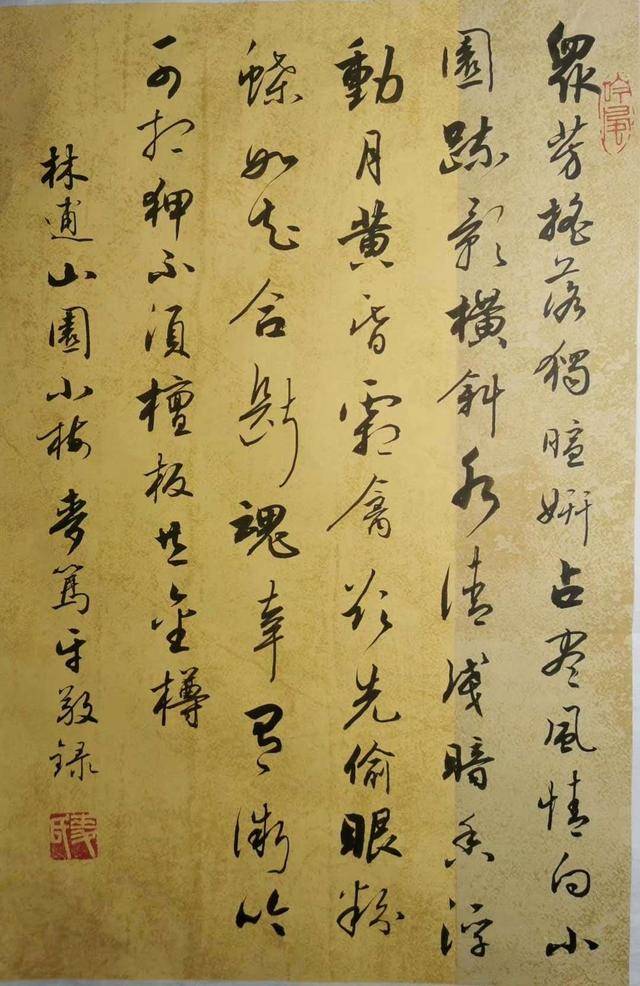 吟風
眾芳搖落獨暄妍占盡風情向小
園疎影横斜水清浅暗香浮
動月黄昏霜禽欲先偷眼粉
蝶如知合斷魂幸有微吟
可相狎不須檀板共金樽
林逋山園小梅 麥篤平敬録